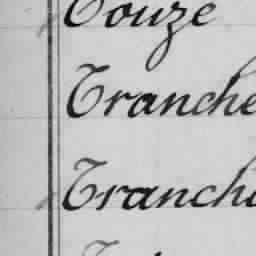 Touze
Tranche
Tranche